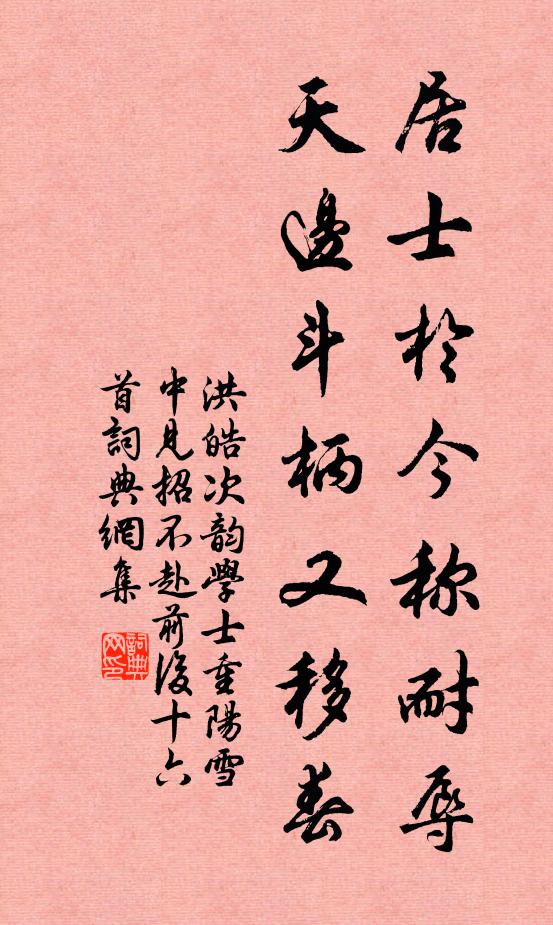 居士於今称耐辱
天邊斗柄又移春
洪皓次韵學士重陽雪
中見招不赴前後十六
首詞典網集
詞典网印